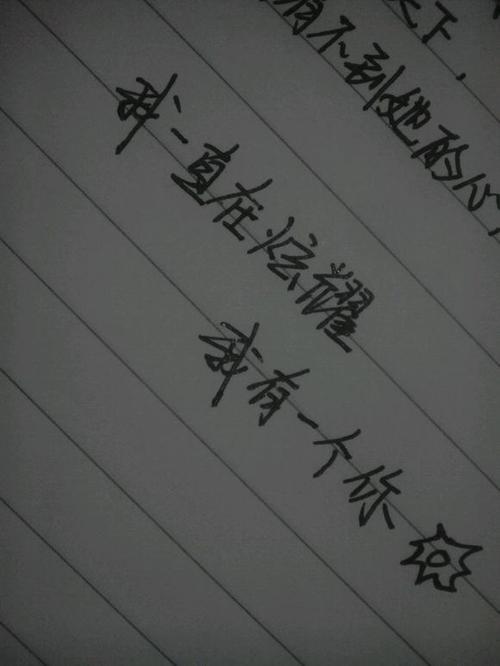 天下，
不到她的心
我一直在炫耀
我有一个你